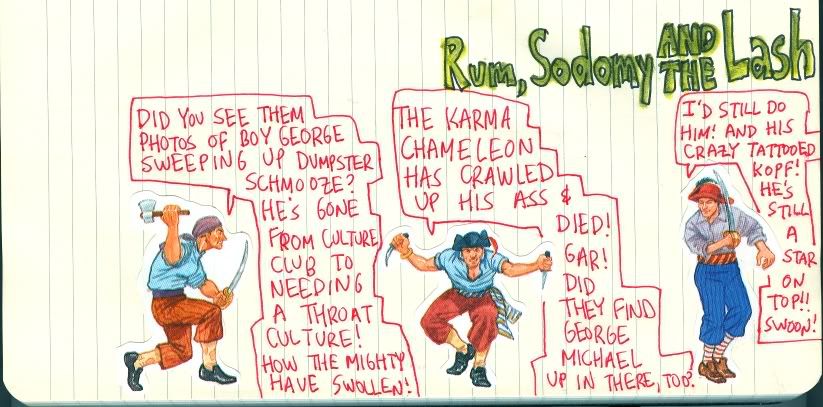 Rum, Sodomy AND THE Lash
DID YOU SEE THEM
PHOTOS OF BOY GEORGE
SWEEPING UP DUMPSTER
SCHMOOZE?
HE'S GONE
FROM CULTURE
CLUB TO
NEEDING
A THROAT
CULTURE!
HOW THE MIGHTY
HAVE SWOLLEN!
THE KARMA
CHAMELEON
HAS CRAWLED
UP HIS ASS &
DIED!
GAR!
DID
THEY FIND
GEORGE
MICHAEL
UP IN THERE, TOO?
I'D STILL DO
HIM! AND HIS
CRAZY TATTOOED
KOPF!
HE'S
STILL
A
STAR
ON
TOP!!
SWOON!